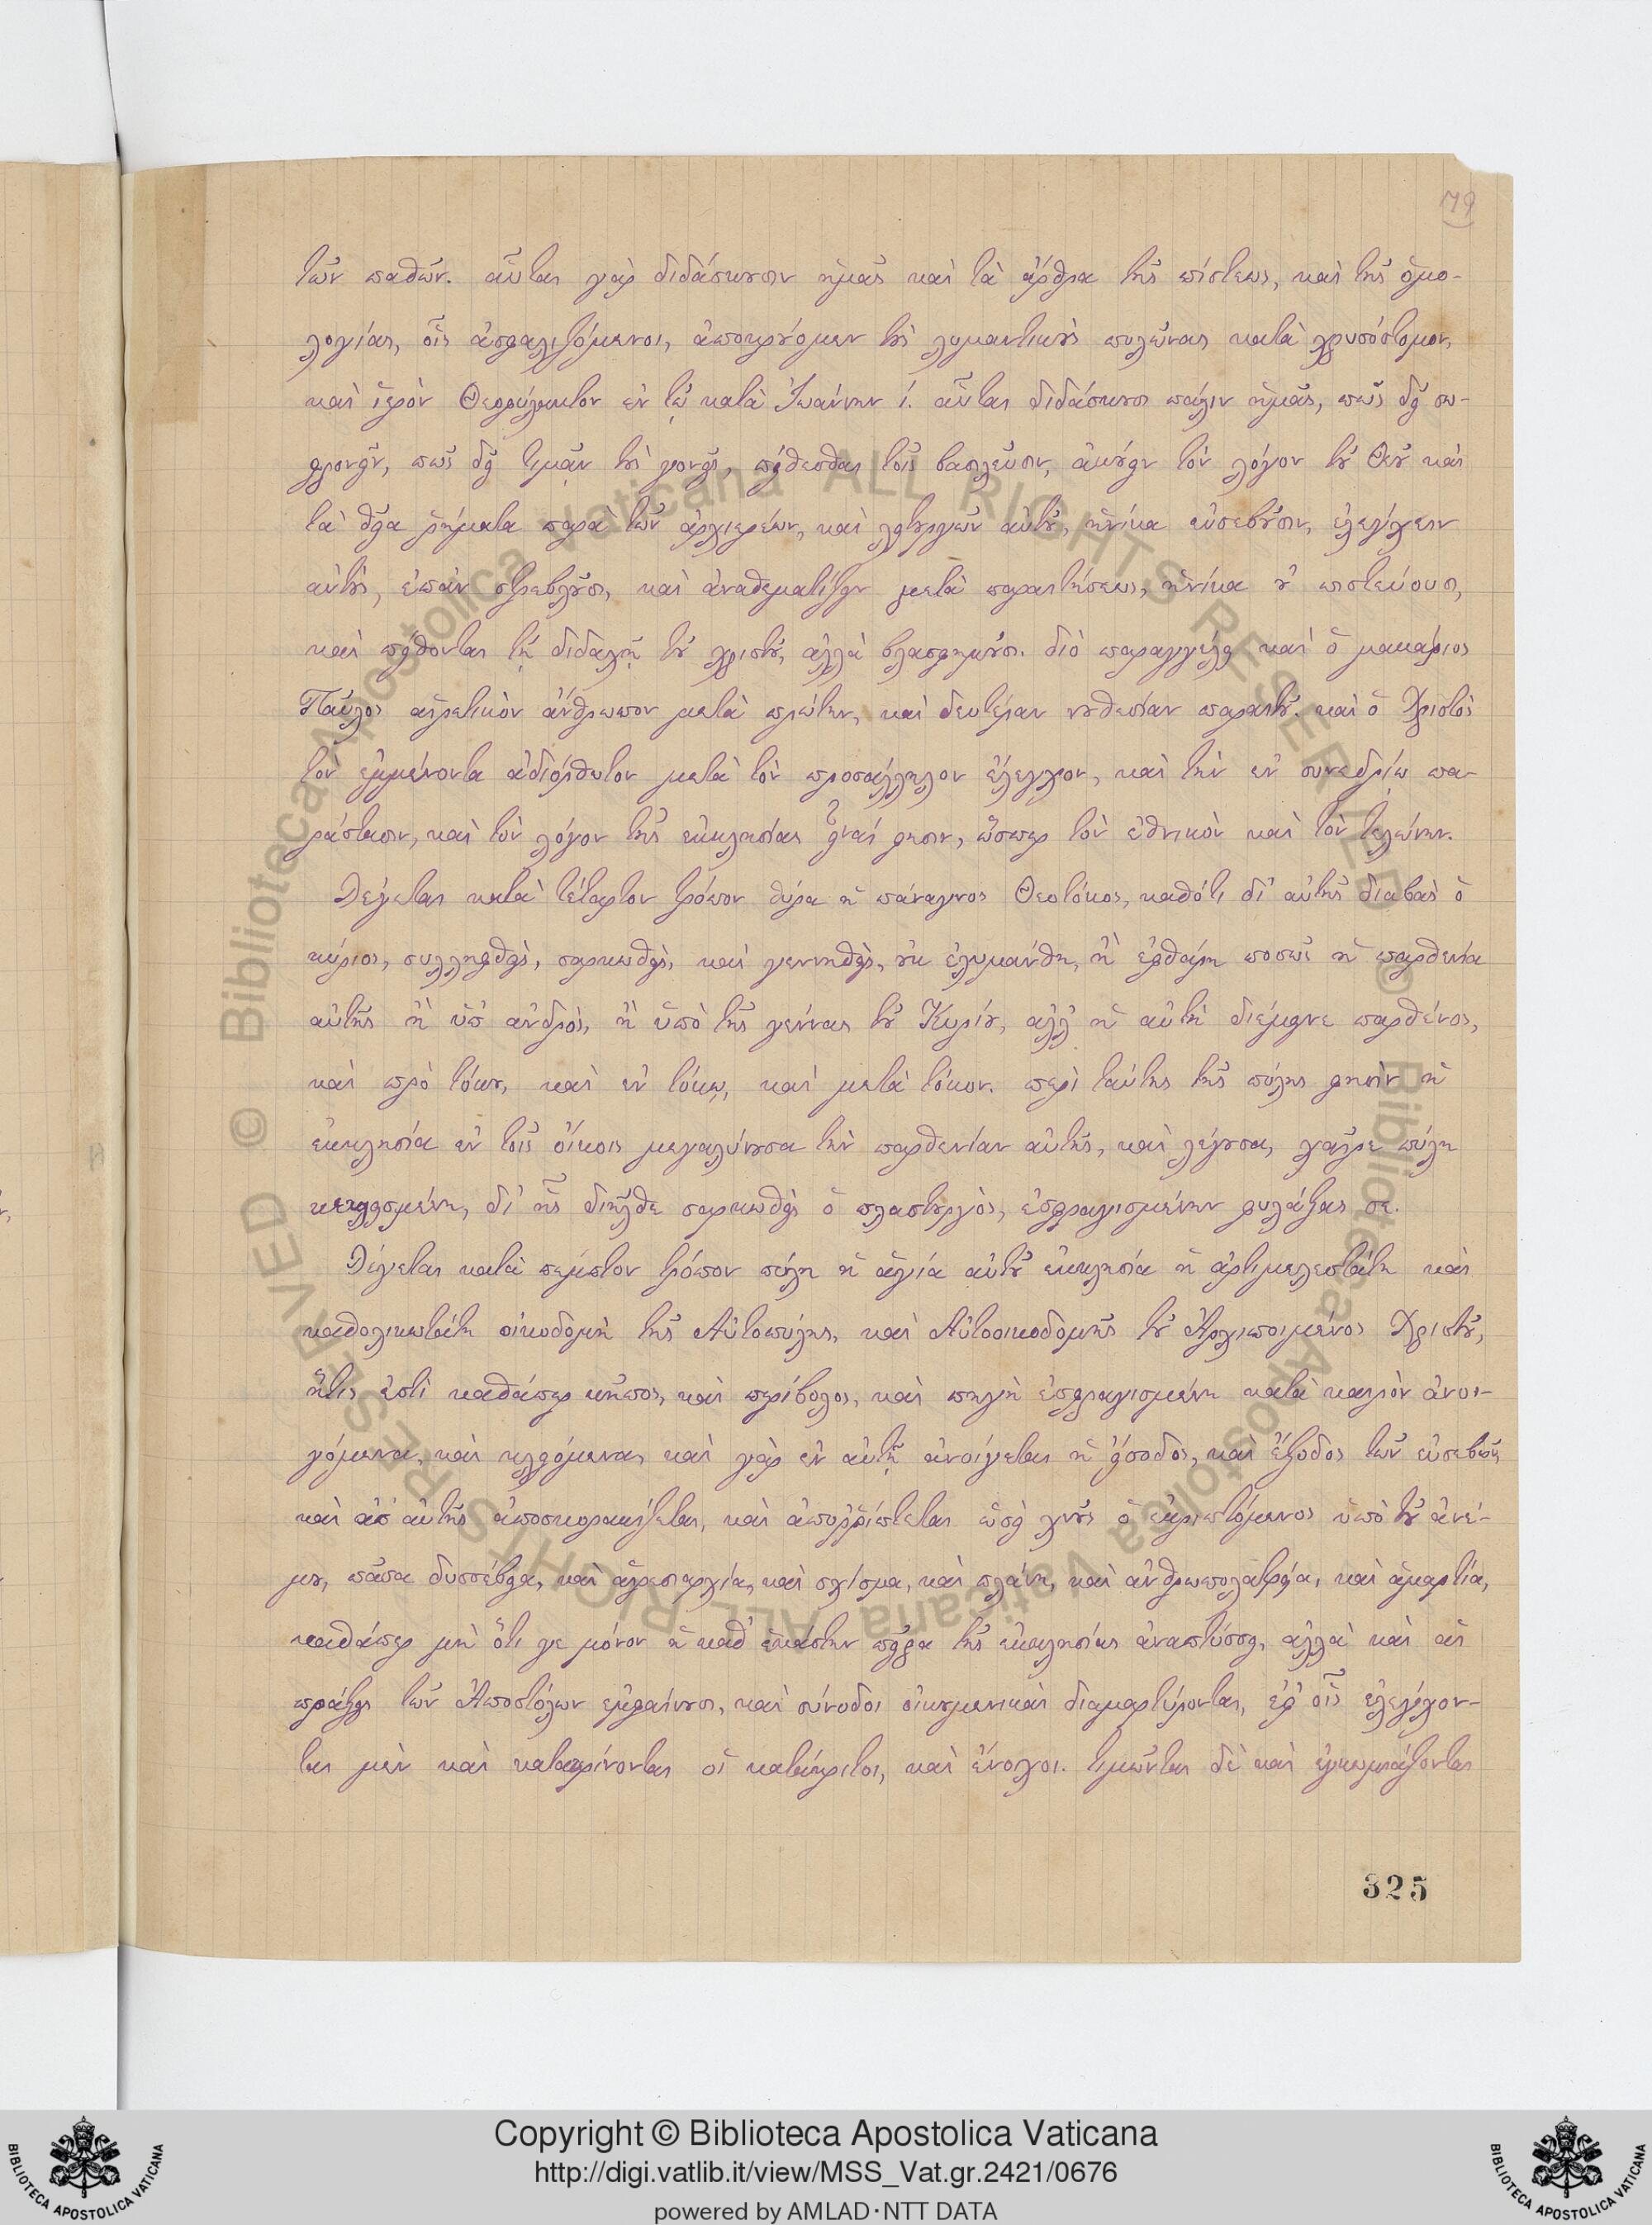 79
τῶν παθῶν. αὗται γὰρ διδάσκουσιν ἡμᾶς καὶ τὰ ἄρθρα τῆς πίστεως, καὶ τῆς ὁμο-
λογίας, οἷς ἀσφαλιζόμενοι, ἀποκρούομεν τοὺς λυμαντικοὺς πυλῶνας κατὰ χρυσόστομον,
καὶ ἱερὸν Θεοφύλακτον ἐν τῷ κατὰ Ἰωάννην ί. αὗται διδάσκουσι πάλιν ἡμᾶς, πῶς δεῖ σω-
φρονεῖν, πῶς δεῖ τιμᾶν τοὺς γονεῖς, πείθεσθαι τοῖς βασιλεῦσιν, ἀκούειν τὸν λόγον τοῦ Θεοῦ καὶ
τὰ θεῖα ῥήματα παρὰ τῶν ἀρχιερέων, καὶ λειτουργῶν αὐτοῦ, ἡνίκα εὐσεβοῦσιν, ἐλεγχειν
αὐτοὺς, ἐπὰν στρεβλοῦσι, καὶ ἀναθεματίζειν μετὰ παραιτήσεως, ἡνίκα οὐ πιστεύουσι,
καὶ πείθονται τῇ διδαχῇ τοῦ χριστοῦ, ἀλλὰ βλασφημοῦσι. διὸ παραγγέλει καὶ ὁ μακάριος
Παῦλος αἱρετικὸν ἄνθρωπον μετὰ πρώτην, καὶ δευτέραν νουθεσίαν παραιτοῦ. καὶ ὁ Χριστὸς
τὸν ἐμμένοντα ἀδιόρθωτον μετὰ τὸν προσάλληλον ἔλεγχον, καὶ τὴν ἐν συνεδρίῳ πα-
ράστασιν, καὶ τὸν λόγον τῆς ἐκκλησίας εἶναί φησιν, ὥσπερ τὸν ἐθνικὸν καὶ τὸν τελώνην.
Λέγεται κατὰ τέταρτον τρόπον θύρα ἡ πάναγνος Θεοτόκος, καθότι δι' αὐτῆς διαβὰς ὁ
κύριος, συλληφθεὶς, σαρκωθεὶς, καὶ γεννηθεὶς, οὐκ ἐλυμάνθη, ἢ ἐφθάρη ποσῶς ἡ παρθενία
αὐτῆς ἢ ὑπ' ἀνδρὸς, ἢ ὑπὸ τῆς γέννας τοῦ Κυρίου, ἀλλ' ἡ αὐτὴ διέμεινε παρθένος,
καὶ πρὸ τόκου, καὶ ἐν τόκῳ, καὶ μετὰ τόκον. περὶ ταύτης τῆς πύλης φησὶν ἡ
ἐκκλησία ἐν τοῖς οἴκοις μεγαλύνουσα τὴν παρθενίαν αὐτῆς, καὶ λέγουσα, χαῖρε πύλη
κεκλεισμένη, δι' ἧς διῆλθε σαρκωθεὶς ὁ πλαστουργὸς, ἐσφραγισμένην φυλάξας σε.
Λέγεται κατὰ πέμπτον τρόπον πύλη ἡ ἁγία αὐτοῦ ἐκκλησία ἡ ἀρτιμελεστάτη καὶ
καθολικωτάτη οἰκοδομὴ τῆς Αὐτοπύλης, καὶ Αὐτοοικοδομῆς τοῦ Ἀρχιποιμένος Χριστοῦ,
ἥτις ἐστὶ καθάπερ κῆπος, καὶ περίβολος, καὶ πηγὴ ἐσφραγισμένη κατὰ καιρὸν ἀνοι-
γόμενα, καὶ κλειόμενα, καὶ γὰρ ἐν αὐτῇ ἀνοίγεται ἡ εἴσοδος, καὶ ἔξοδος τῶν εὐσεβῶν,
καὶ ἀπ' αὐτῆς ἀποσκορακίζεται, καὶ ἀποῤῥίπτεται ὡσεὶ χνοῦς ὁ ἐκριπτόμενος ὑπὸ τοῦ ἀνέ-
μου, πᾶσα δυσσέβεια, καὶ αἱρεσιαρχία, καὶ σχίσμα, καὶ πλάνη, καὶ ἀνθρωπολατρεία, καὶ ἁμαρτία,
καθάπερ μὴ ὅτι γε μόνον ἡ καθ' ἑκάστην πεῖρα τῆς ἐκκλησίας ἀναπτύσσει, ἀλλὰ καὶ αἱ
πράξεις τῶν Ἀποστόλων ἐμφαίνουσι, καὶ σύνοδοι οἰκουμενικαὶ διαμαρτύρονται, ἐφ' οἷς ἐλέγχον-
ται μὲν καὶ κατακρίνονται οἱ κατάκριτοι, καὶ ἔνοχοι. τιμῶνται δὲ καὶ ἐγκωμιάζονται
325
© Biblioteca Apostolica Vaticana ALL RIGHTS RESERVED
© Biblioteca Apostolica Vaticana ALL RIGHTS RESERVED
Copyright © Biblioteca Apostolica Vaticana
http://digi.vatlib.it/view/MSS_Vat.gr.2421/0676
powered by AMLAD·NTT DATA
BIBLIOTECA APOSTOLICA VATICANA
BIBLIOTECA APOSTOLICA VATICANA